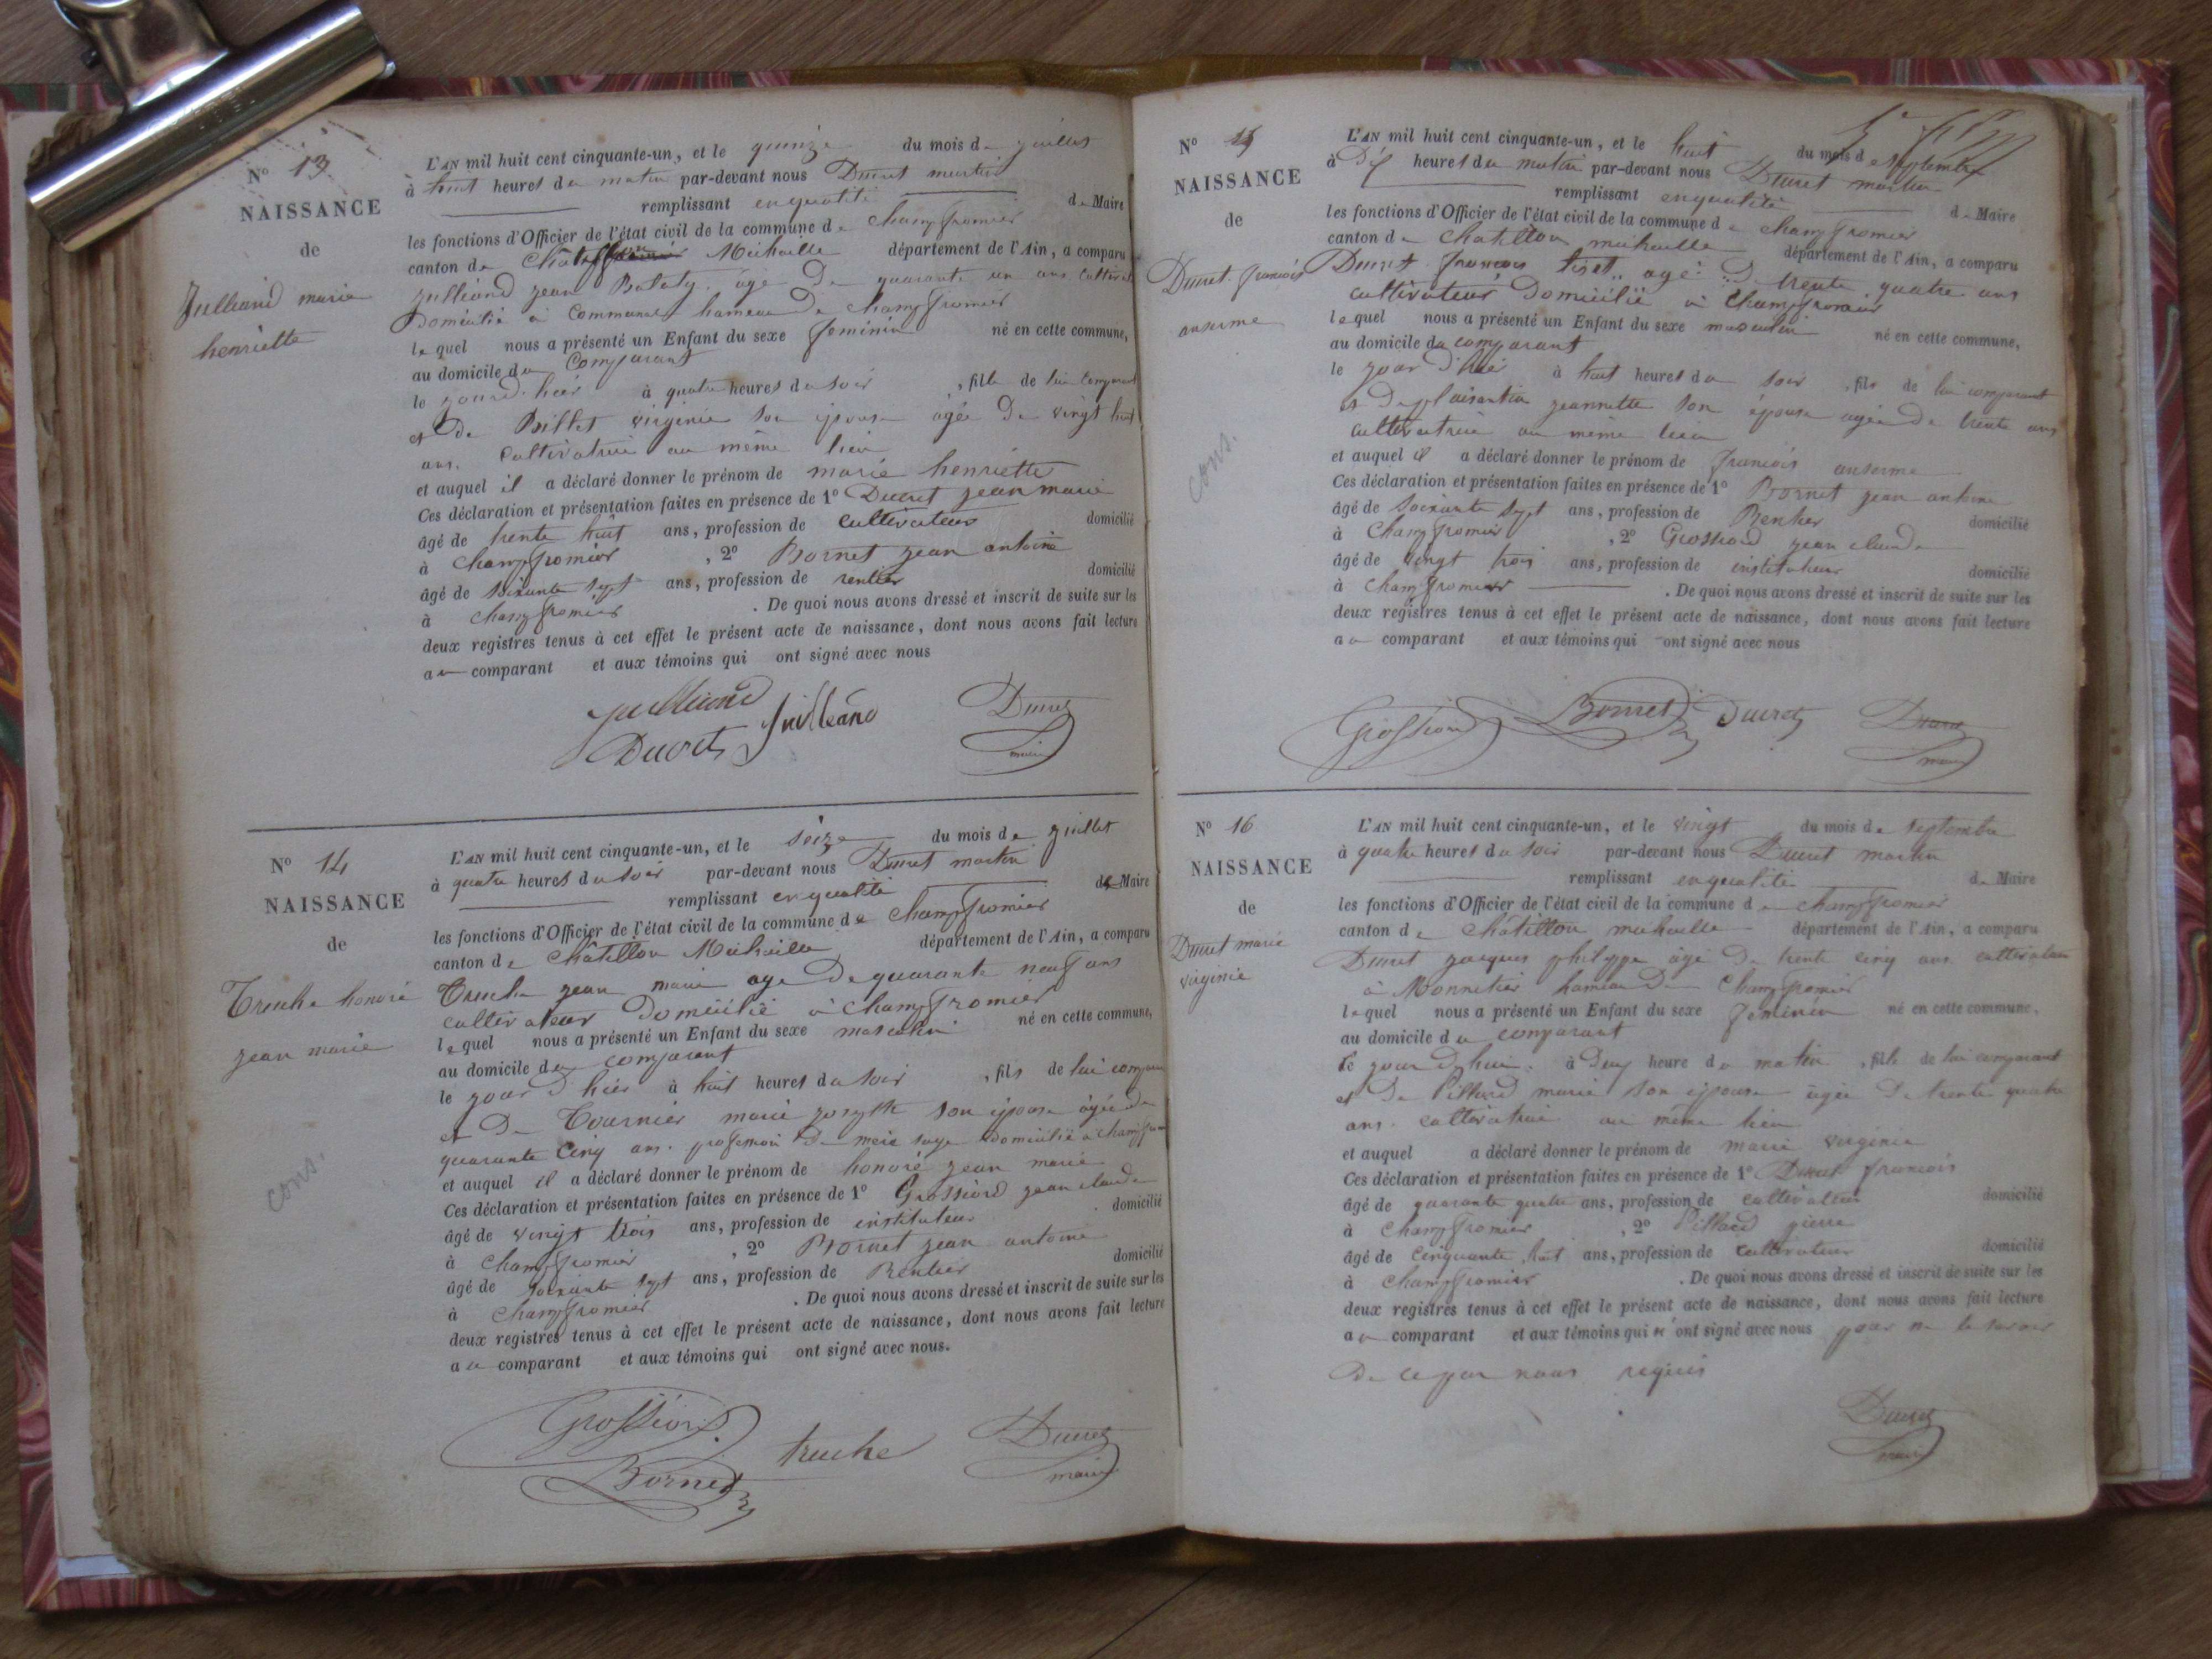 N° 13
NAISSANCE
de
Julliand marie
henriette
L'AN mil huit cent cinquante-un, et le quinze du mois de juillet
à huit heures du matin par-devant nous Ducret martin
remplissant en qualité de Maire
les fonctions d'Officier de l'état civil de la commune de Champfromier
canton de Michaille département de l'Ain, a comparu
Julliand jean Batoty. âgé de quarante un ans
Domicilié à Communal hameau de Champfromier
lequel nous a présenté un Enfant du sexe féminin né en cette commune,
au domicile du Comparant
le jourd'hier à quatre heures du soir, fille de lui comparant
et de Billet virginie son épouse âgée de vingt huit
ans. Cultivatrice au même lieu
et auquel il a déclaré donner le prénom de marie henriette
Ces déclaration et présentation faites en présence de 1° Ducret jean marie
âgé de trente huit ans, profession de cultivateur domicilié
à Champfromier, 2° Bornet jean antoine
âgé de soixante sept ans, profession de rentier domicilié
à Champfromier. De quoi nous avons dressé et inscrit de suite sur les
deux registres tenus à cet effet le présent acte de naissance, dont nous avons fait lecture
au comparant et aux témoins qui ont signé avec nous
Julliand
Ducret Juilleand Ducret
maire
N° 14
NAISSANCE
de
Truche honoré
jean marie
cons.
L'AN mil huit cent cinquante-un, et le seize du mois de juillet
à quatre heures du soir par-devant nous Ducret martin
remplissant en qualité de Maire
les fonctions d'Officier de l'état civil de la commune de Champfromier
canton de Châtillon Michaille département de l'Ain, a comparu
Truche jean marie age de quarante neuf ans
cultivateur Domicilié à Champfromier
lequel nous a présenté un Enfant du sexe masculin né en cette commune,
au domicile du comparant
le jour d'hier à huit heures du soir, fils de lui comparant
et de Tournier marie josephte son épouse âgée de
quarante cinq ans. profession de mere sage domicilié à Champfromier
et auquel il a déclaré donner le prénom de honoré jean marie
Ces déclaration et présentation faites en présence de 1° Grossiord jean claude
âgé de vingt trois ans, profession de instituteur domicilié
à Champfromier, 2° Bornet jean antoine
âgé de soixante sept ans, profession de Rentier domicilié
à Champfromier. De quoi nous avons dressé et inscrit de suite sur les
deux registres tenus à cet effet le présent acte de naissance, dont nous avons fait lecture
au comparant et aux témoins qui ont signé avec nous.
Grossiord
Bornet truche Ducret
maire
N° 15
NAISSANCE
de
Ducret françois
anserme
cons.
L'AN mil huit cent cinquante-un, et le huit du mois de septembre
à Dix heures du matin par-devant nous Ducret martin
remplissant en qualité de Maire
les fonctions d'Officier de l'état civil de la commune de Champfromier
canton de Chatillon michaille département de l'Ain, a comparu
Ducret françois agé de trente quatre ans
cultivateur Domicilié à Champfromier
lequel nous a présenté un Enfant du sexe masculin né en cette commune,
au domicile du comparant
le jour d'hier à huit heures du soir, fils de lui comparant
et Deplaisantin jeannette son épouse agée de trente ans
cultivatrice au meme lieu
et auquel il a déclaré donner le prénom de françois anserme
Ces déclaration et présentation faites en présence de 1° Bornet jean antoine
âgé de soixante sept ans, profession de Rentier domicilié
à Champfromier, 2° Grossiord jean claude
âgé de vingt trois ans, profession de instituteur domicilié
à Champfromier. De quoi nous avons dressé et inscrit de suite sur les
deux registres tenus à cet effet le présent acte de naissance, dont nous avons fait lecture
au comparant et aux témoins qui ont signé avec nous
Grossiord Bornet Ducret Ducret
maire
N° 16
NAISSANCE
de
Ducret marie
virginie
L'AN mil huit cent cinquante-un, et le vingt du mois de septembre
à quatre heures du soir par-devant nous Ducret martin
remplissant en qualité de Maire
les fonctions d'Officier de l'état civil de la commune de Champfromier
canton de Châtillon michaille département de l'Ain, a comparu
Ducret jacques philippe âgé de trente cinq ans cultivateur
à Monnetier hameau de Champfromier
lequel nous a présenté un Enfant du sexe féminin né en cette commune,
au domicile du comparant
le jour d'hui à Deux heure du matin, fille de lui comparant
et de Pillard marie son épouse agée de trente quatre
ans. cultivatrice au même lieu
et auquel a déclaré donner le prénom de marie virginie
Ces déclaration et présentation faites en présence de 1° Ducret françois
âgé de quarante quatre ans, profession de cultivateur domicilié
à Champfromier, 2° Pillard pierre
âgé de cinquante huit ans, profession de cultivateur domicilié
à Champfromier. De quoi nous avons dressé et inscrit de suite sur les
deux registres tenus à cet effet le présent acte de naissance, dont nous avons fait lecture
au comparant et aux témoins qui n'ont signé avec nous pour ne le savoir
de ce par nous requis
Ducret
maire